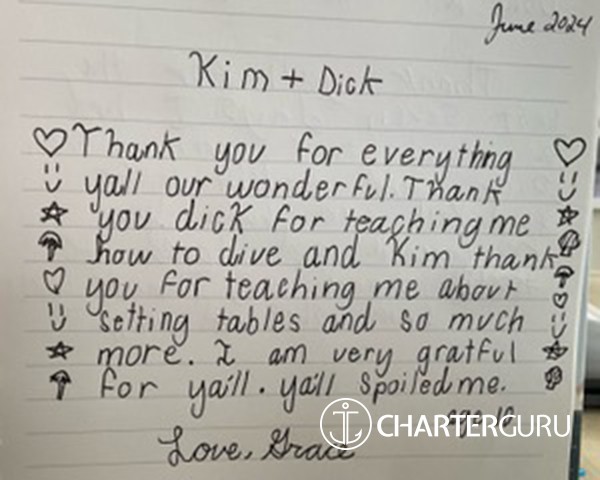 June 2024
Kim + Dick
Thank you for everything
yall our wonderful. Thank
you dick for teaching me
how to dive and Kim thank
you for teaching me about
setting tables and so much
more. I am very gratful
for ya'll. ya'll spoiled me.
age 10
Love, Grace
CHARTERGURU